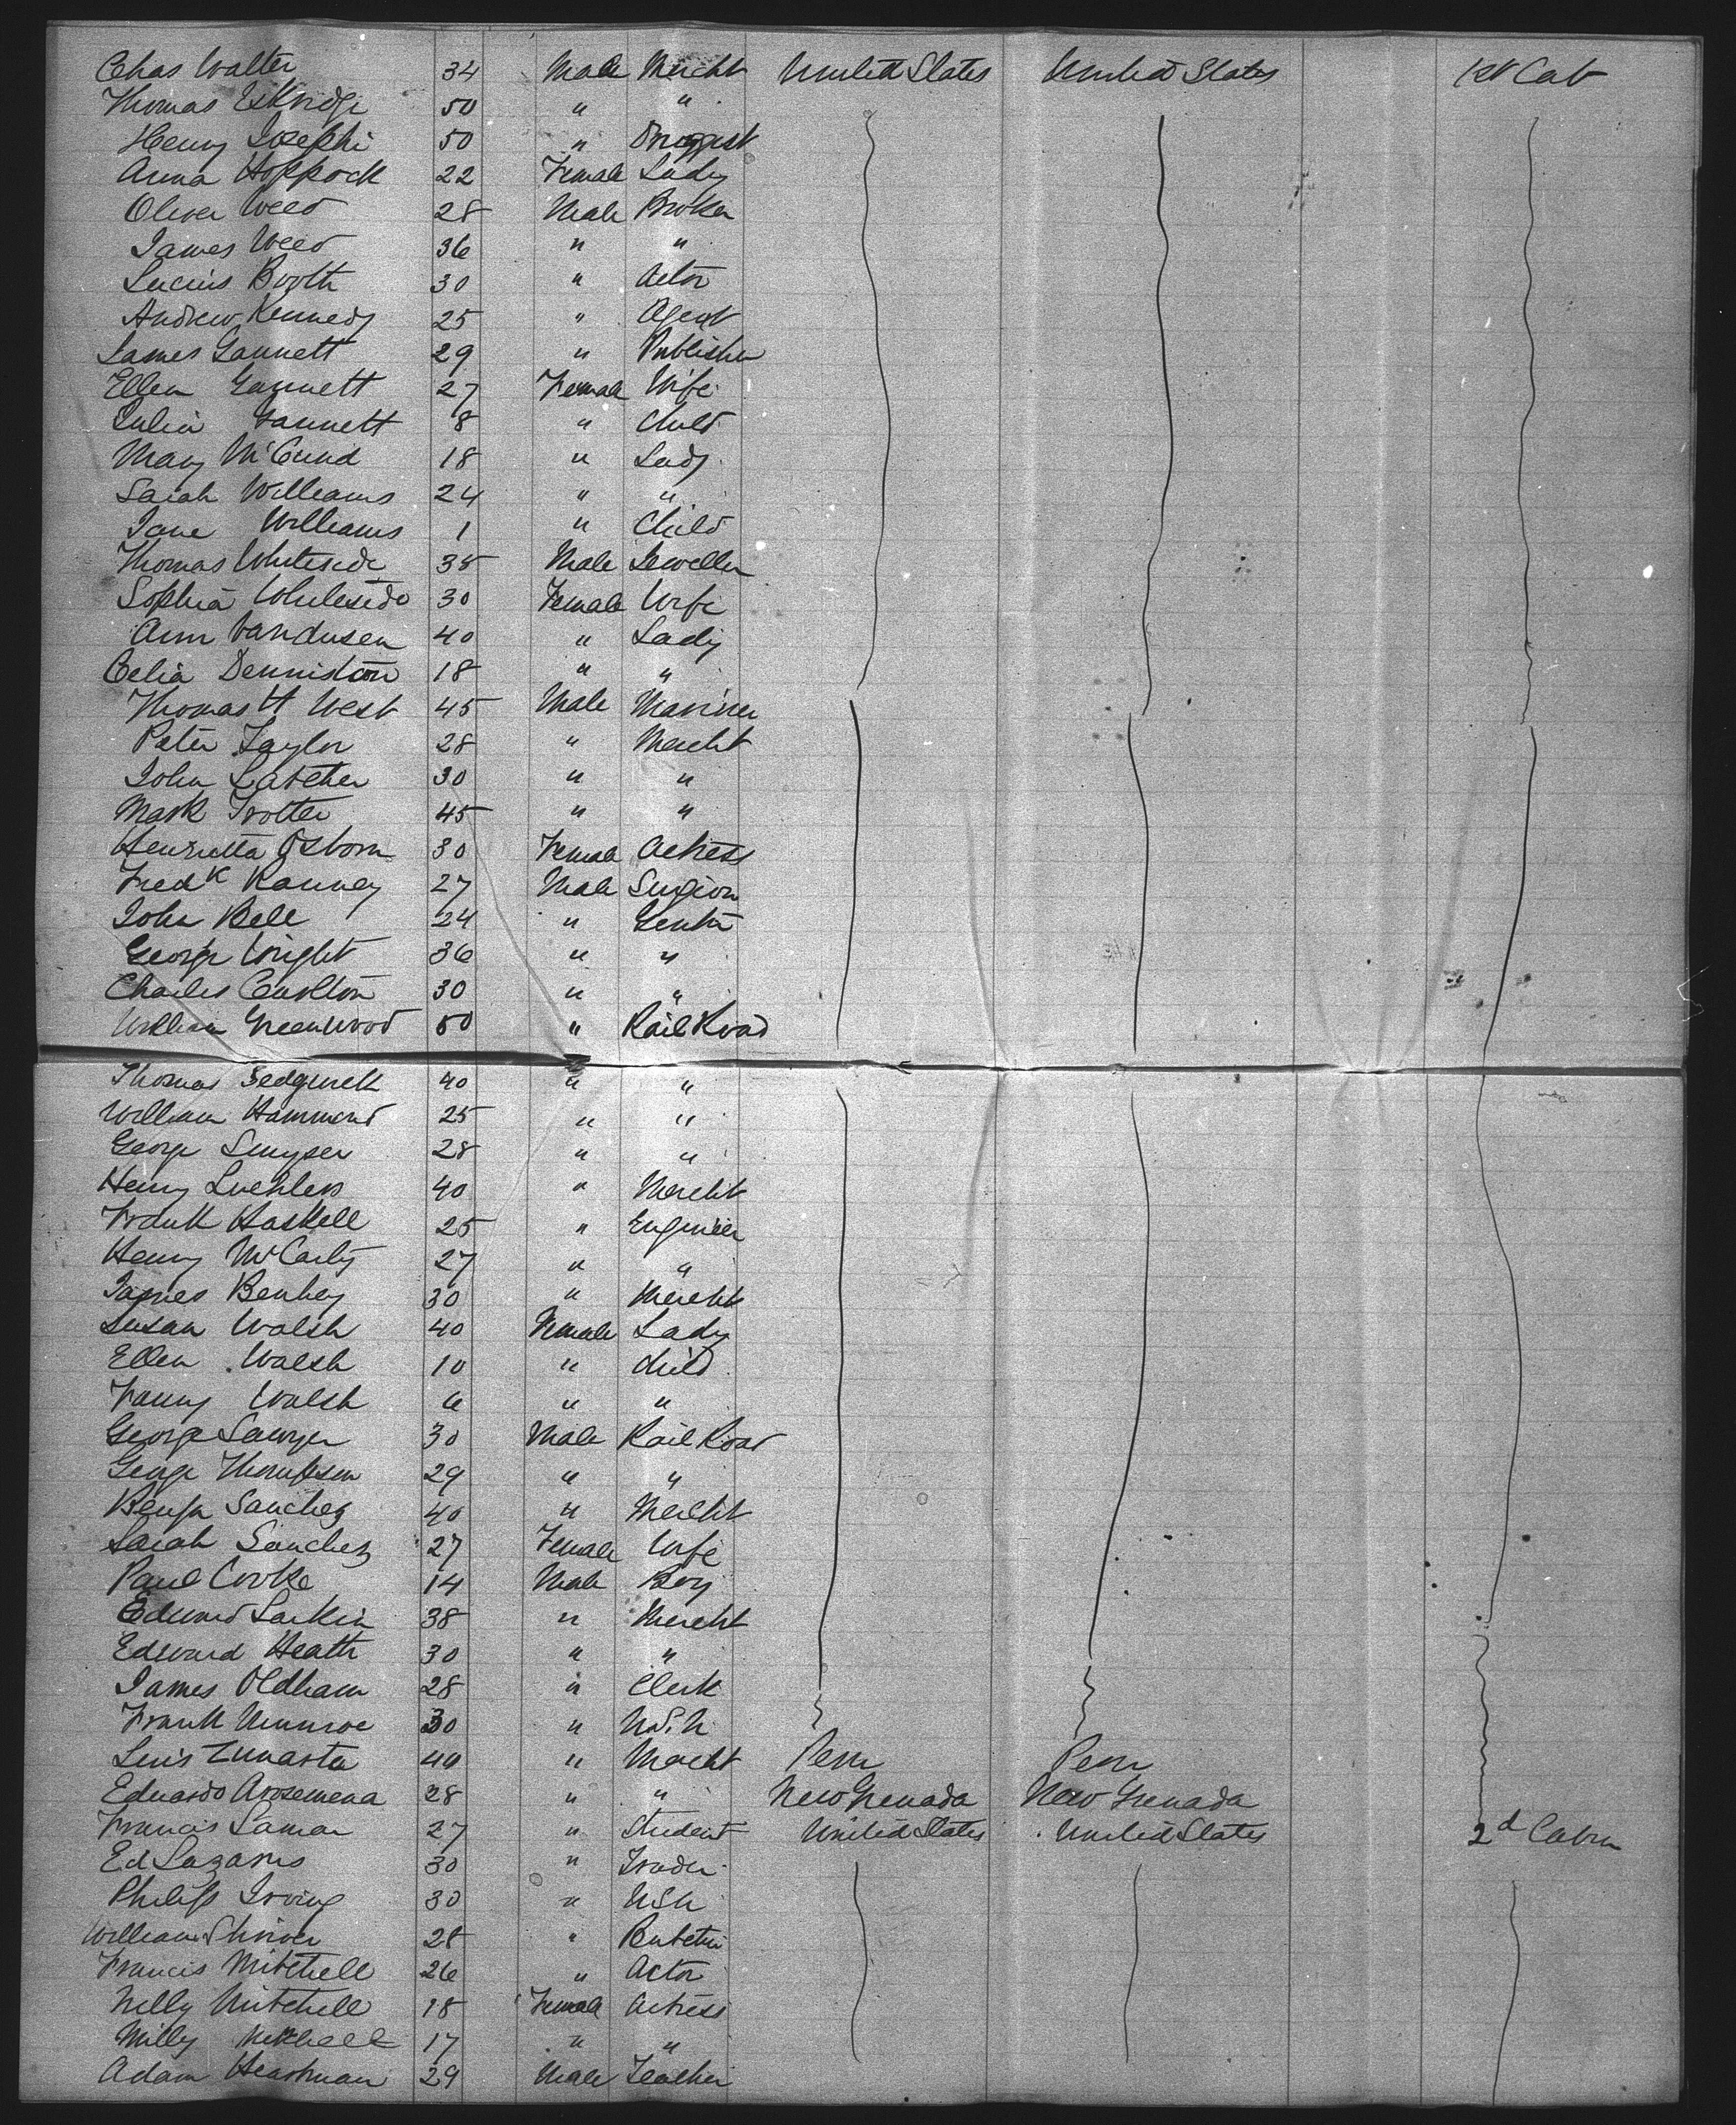 Chas Walter 34 Male Mercht United States United States 1st Cab
Thomas Eskridge 50 " "
Henry Josephi 50 " Druggist
Anna Hoppock 22 Female Lady
Oliver Weed 28 Male Broker
James Weed 36 " "
Lucius Booth 30 " Actor
Andrew Kennedy 25 " Agent
James Gannett 29 " Publisher
Ellen Gannett 27 Female Wife
Julia Gannett 8 " Child
Mary 18 " Lady
Sarah Williams 24 " "
Jane Williams 1 " Child
Thomas Whiteside 35 Male Jeweller
Sophia Whiteside 30 Female Wife
Ann Vandusen 40 " Lady
Celia Denniston 18 " "
Thomas H West 45 Male Mariner
Peter Taylor 28 " Mercht
John Latcher 30 " "
Mark Trotter 45 " "
Henrietta Osborn 30 Female Actress
Fredk Ranney 27 Male Surgion
John Bell 24 " Gentn
George Wright 36 " "
Charles Carlton 30 " "
William Greenwood 50 " Rail Road
Thomas Sedgwick 40 " "
William Hammond 25 " "
George Smyser 28 " "
Henry 40 " Mercht
Frank Haskell 25 " Engineer
Henry McCarty 27 " "
James Benley 30 " Mercht
Susan Walsh 40 Female Lady
Ellen Walsh 10 " child
Fanny Walsh 6 " "
George Sawyer 30 Male Rail Road
George Thompson 29 " "
Benjn Sanchez 40 " Mercht
Sarah Sanchez 27 Female Wife
Paul Cooke 14 Male Boy
Edward Larkin 38 " Mercht
Edward Heath 30 " "
James Oldham 28 " Clerk
Frank Munroe 30 " U.S.N
Luis 40 " Mercht Peru Peru
Eduardo Arosemena 28 " " New Grenada New Grenada
Francis Lamar 27 " Student United States United States 2d Cabin
Ed Lazarus 30 " Trader
Philip Irving 30 " USN
William Shriver 28 " Butcher
Francis Mitchell 26 " Actor
Nelly Mitchell 18 Female Actress
Milly Mitchell 17 " "
Adam Heartman 29 Male Teacher